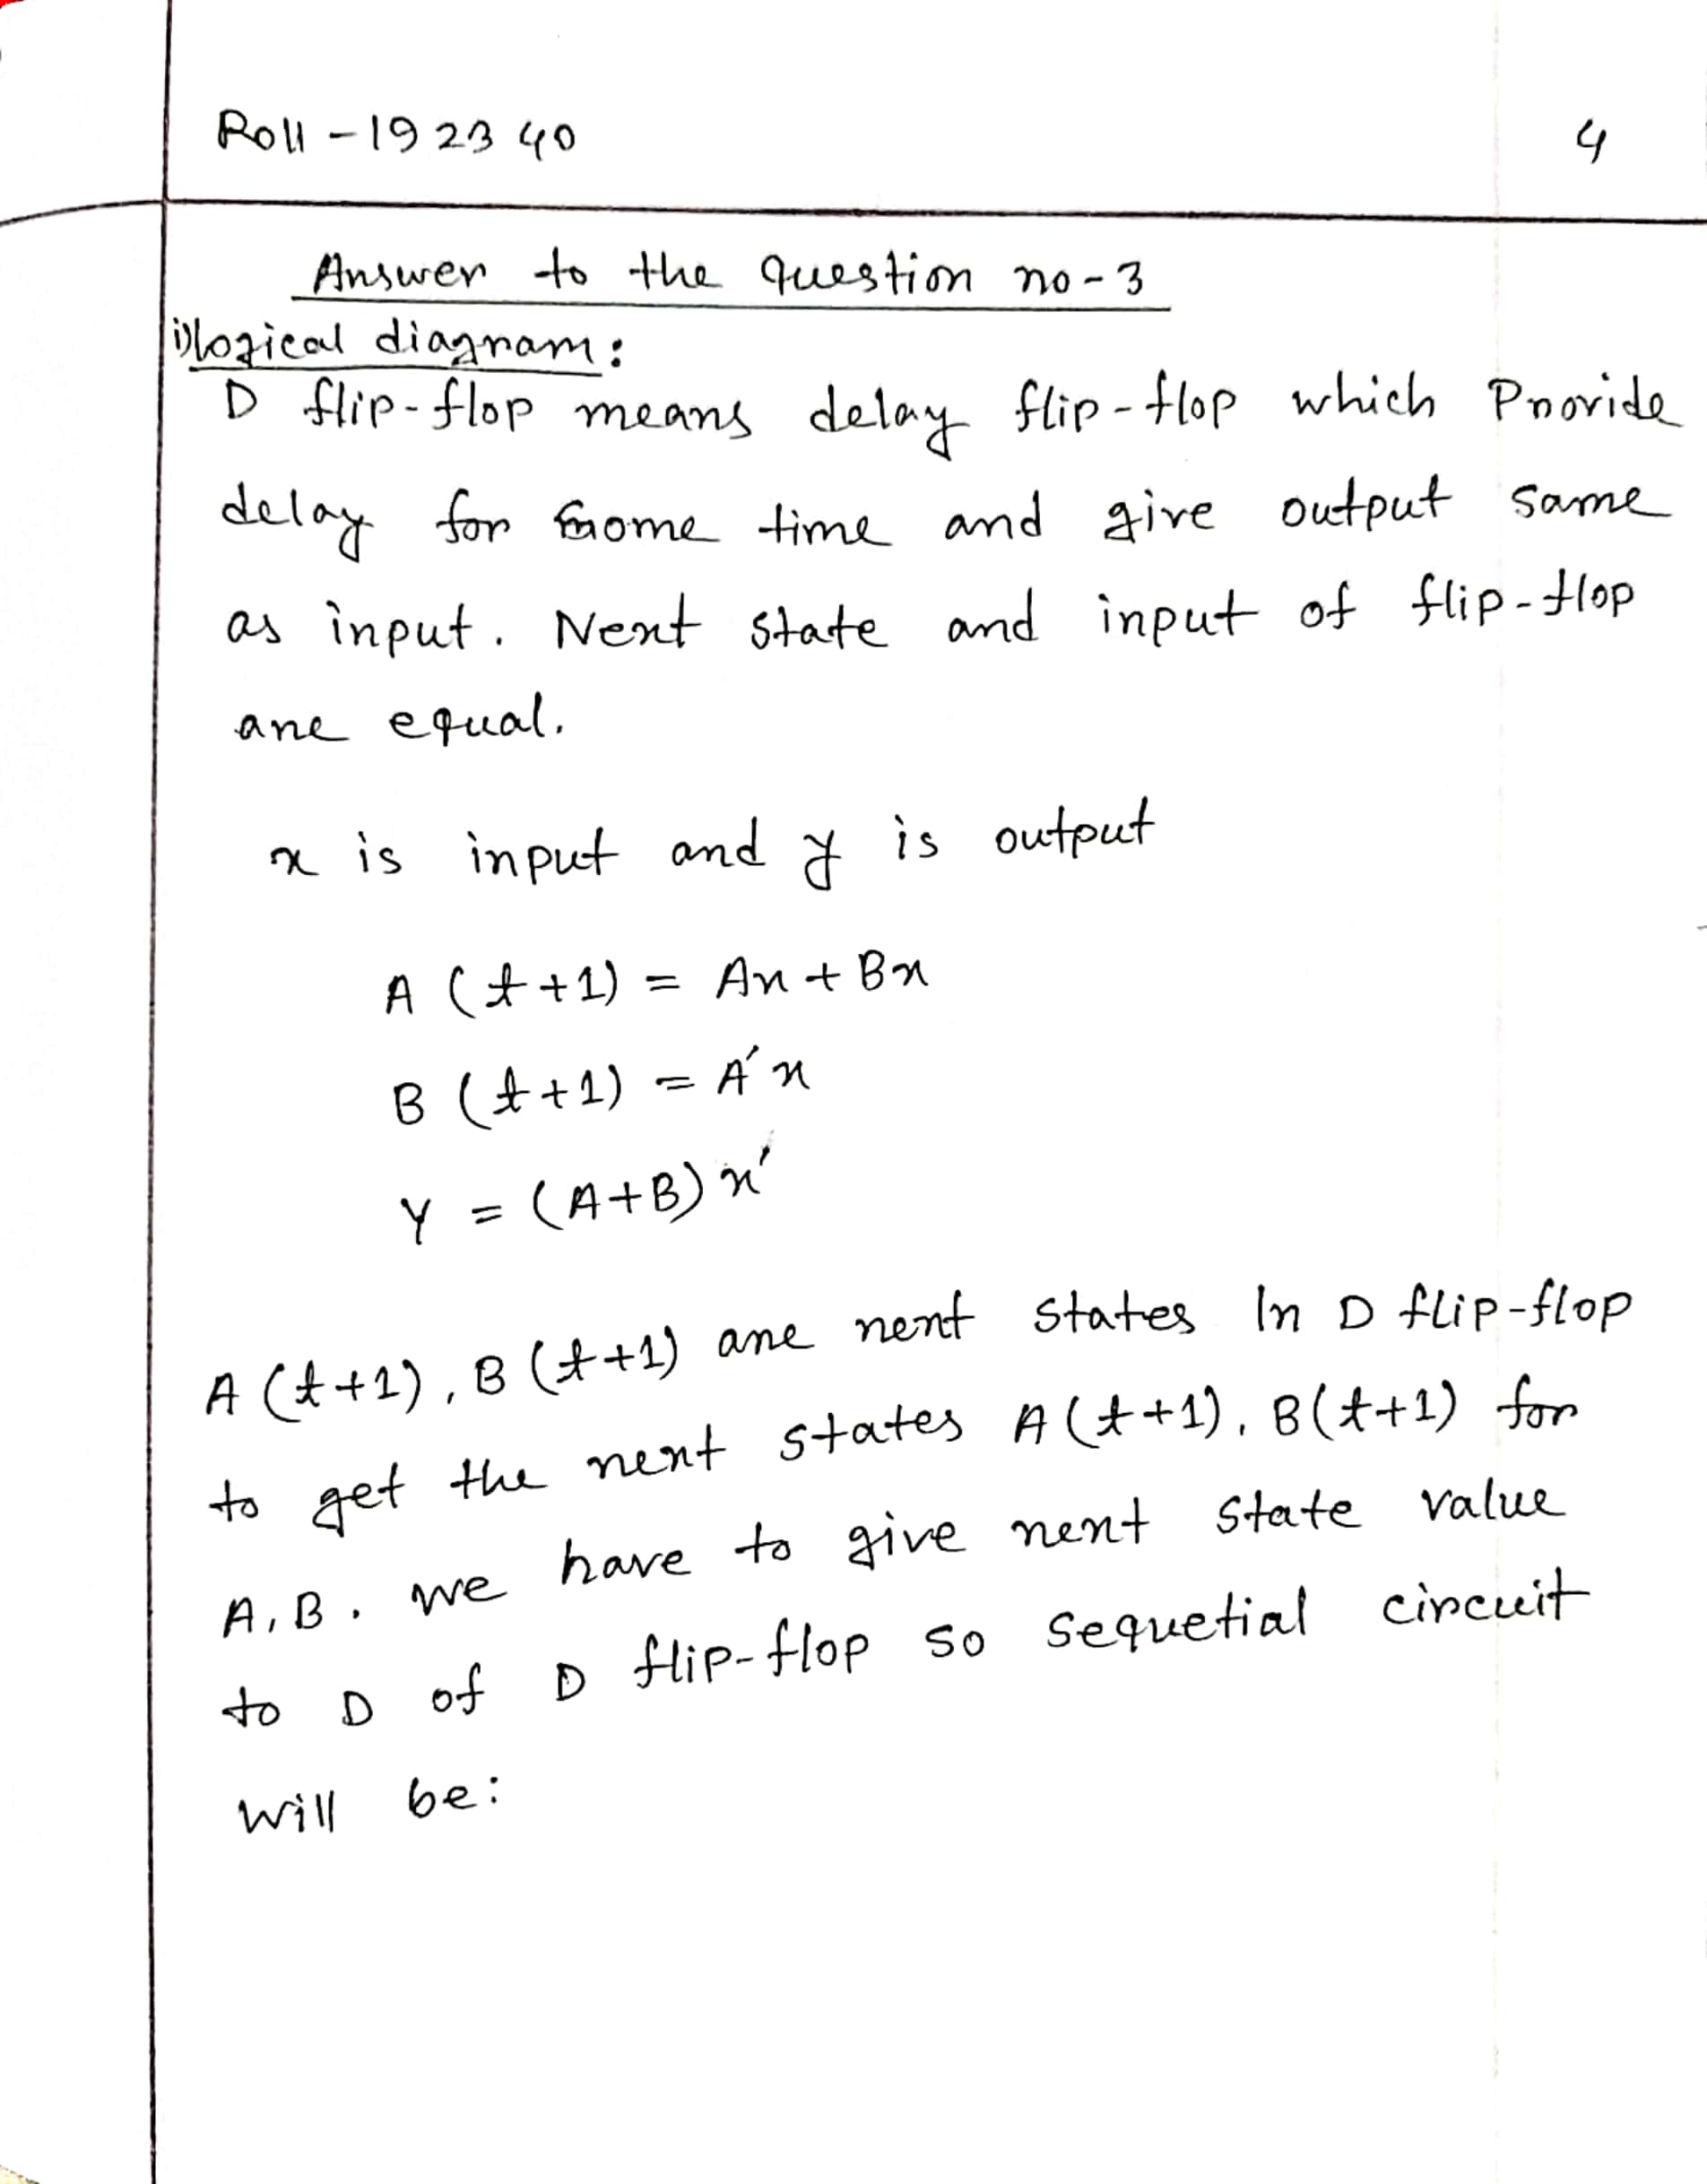 Roll - 192340
4
Answer to the question no-3
i) logical diagram:
D flip-flop means delay flip-flop which Provide
delay for some time and give output same
as input. Next state and input of flip-flop
are equal.
x is input and y is output
A (t+1) = Ax + Bx
B (t+1) = A'x
Y = (A+B) x'
A (t+1), B (t+1) are next states In D flip-flop
to get the next states A(t+1), B(t+1) for
A, B. we have to give next state value
to D of D flip-flop so sequetial circuit
will be: